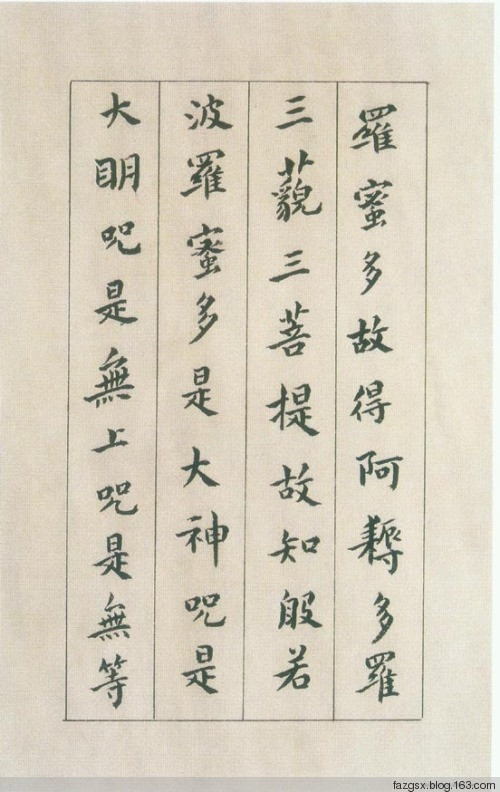 羅蜜多故得阿耨多羅
三藐三菩提故知般若
波羅蜜多是大神咒是
大明咒是無上咒是無等
fazgsx.blog.163.com